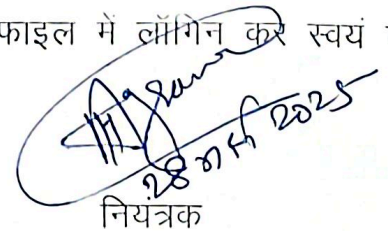 फाइल में लॉगिन कर स्वयं
28 मार्च 2025
नियंत्रक